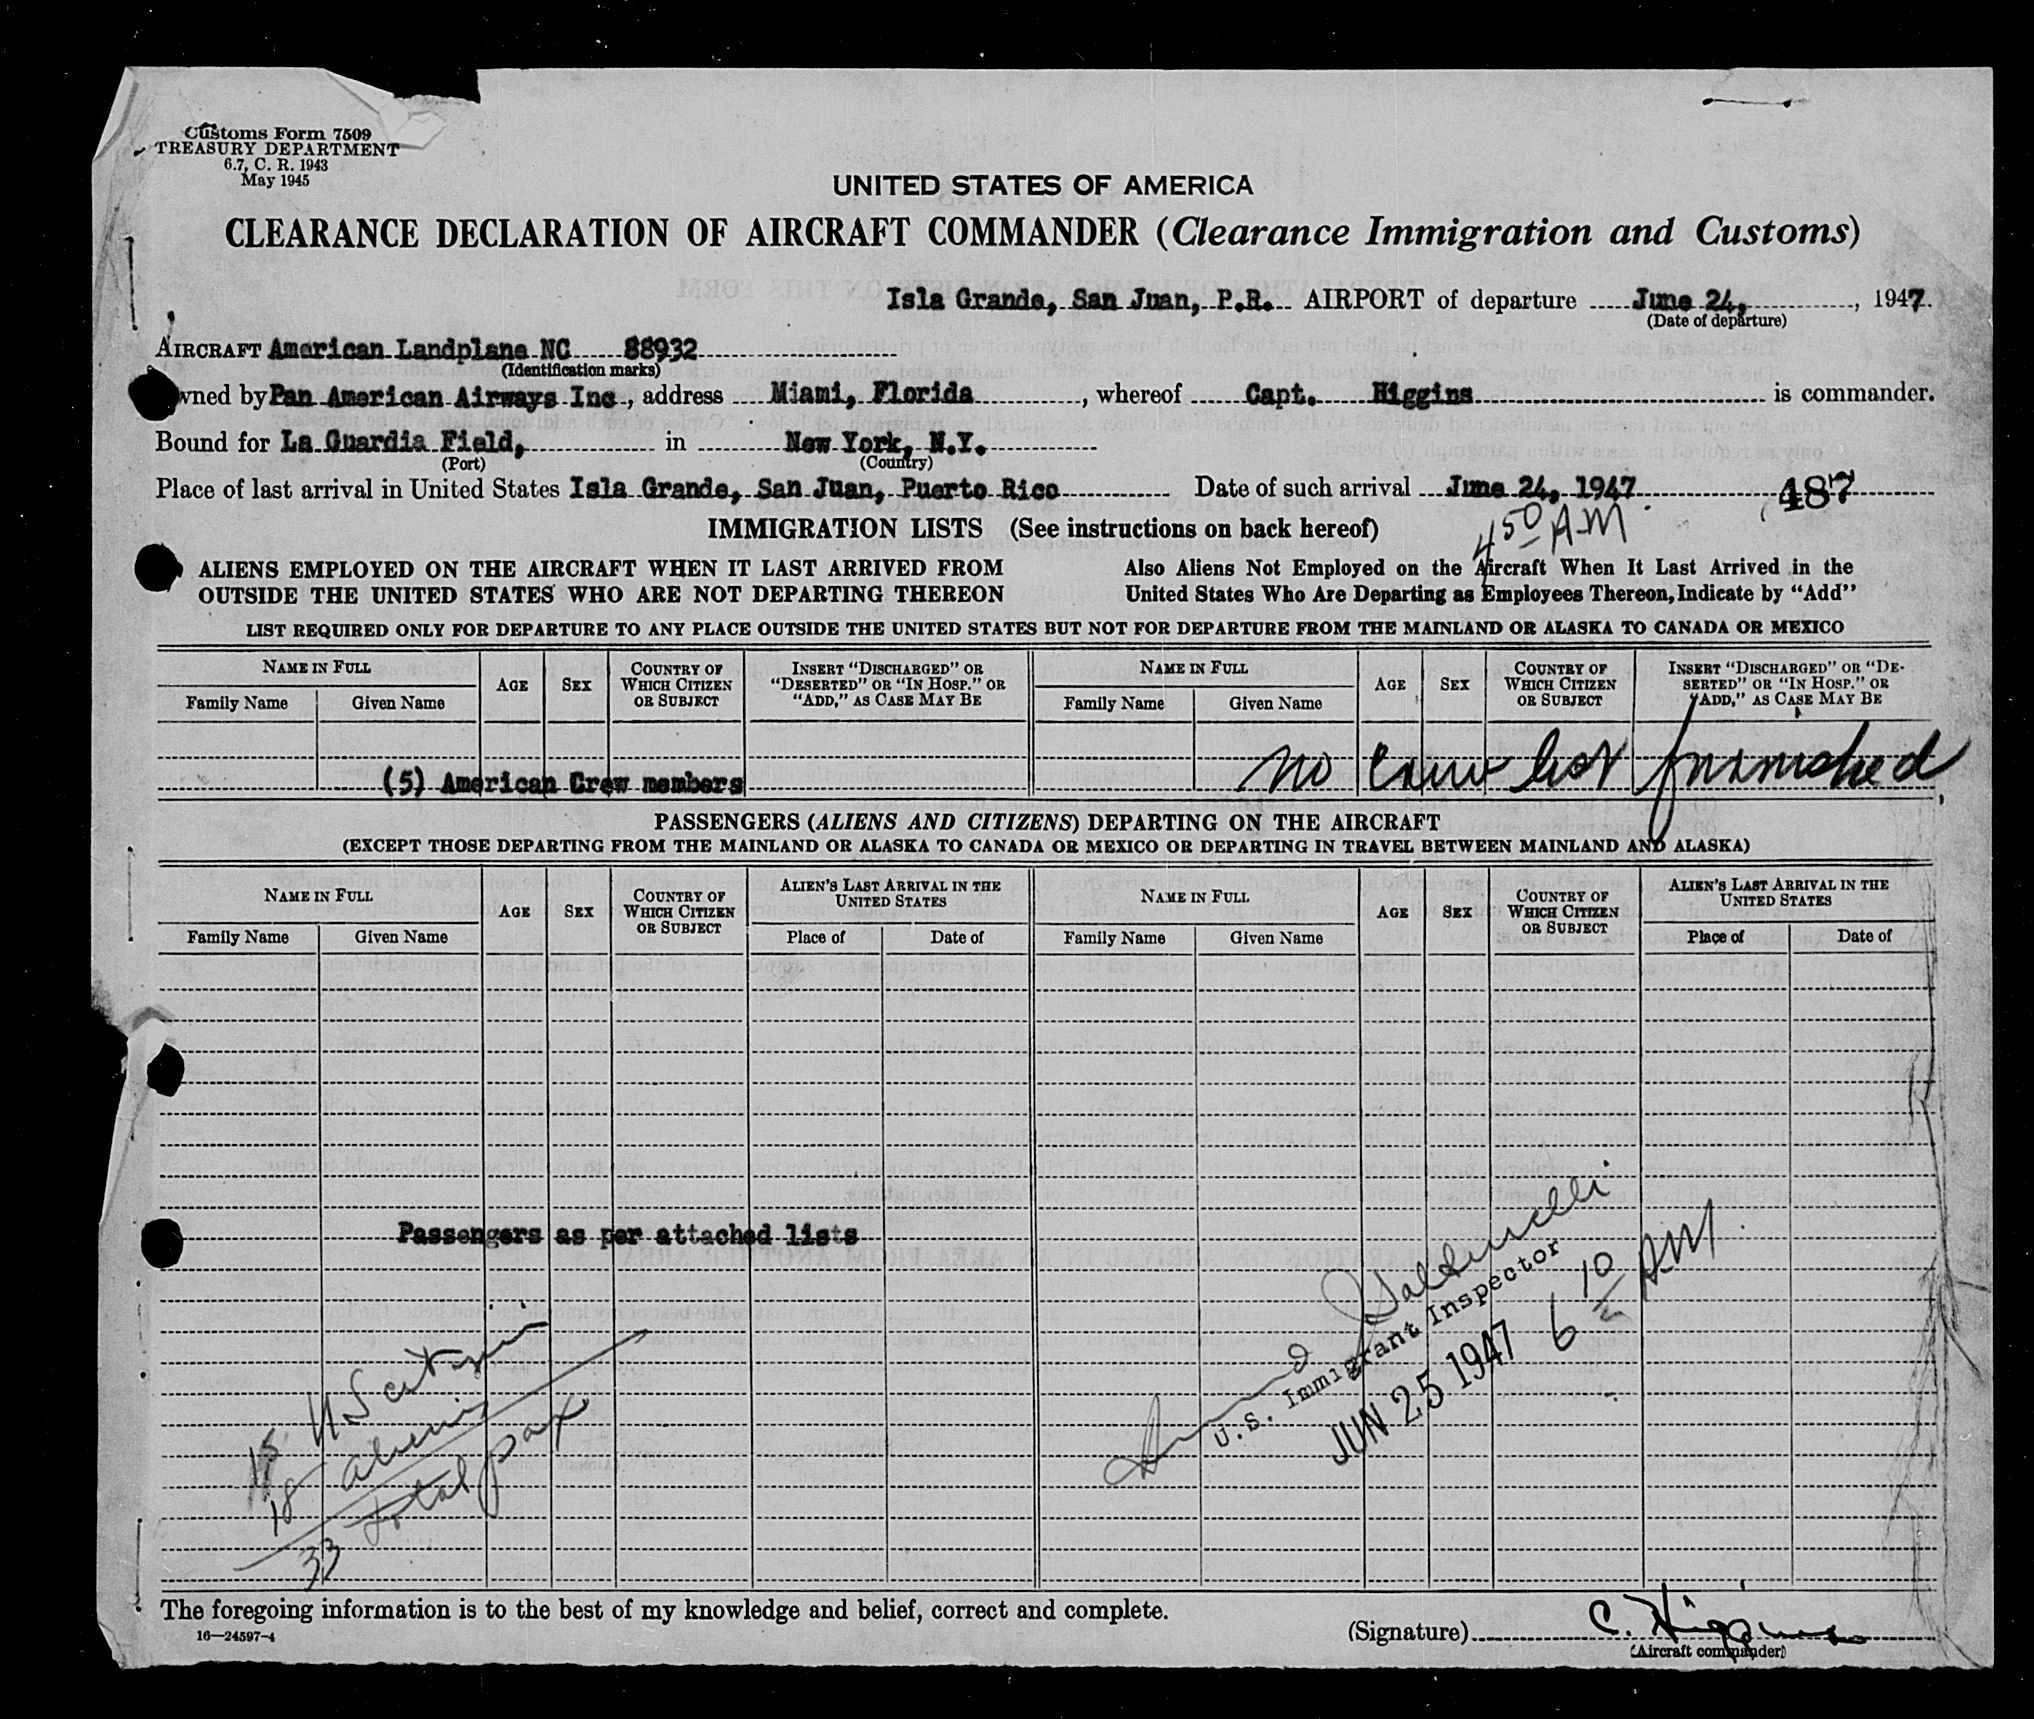 Customs Form 7509
TREASURY DEPARTMENT
6.7, C. R. 1943
May 1945
UNITED STATES OF AMERICA
CLEARANCE DECLARATION OF AIRCRAFT COMMANDER (Clearance Immigration and Customs)
Isla Grande, San Juan, P.R. AIRPORT of departure June 24, , 1947.
(Date of departure)
AIRCRAFT American Landplane NC 88932
(Identification marks)
wned by Pan American Airways Inc , address Miami, Florida , whereof Capt. Higgins is commander.
Bound for La Guardia Field, in New York, N.Y.
(Port) (Country)
Place of last arrival in United States Isla Grande, San Juan, Puerto Rico Date of such arrival June 24, 1947 487
IMMIGRATION LISTS (See instructions on back hereof) 4 50 AM
ALIENS EMPLOYED ON THE AIRCRAFT WHEN IT LAST ARRIVED FROM
OUTSIDE THE UNITED STATES WHO ARE NOT DEPARTING THEREON
Also Aliens Not Employed on the Aircraft When It Last Arrived in the
United States Who Are Departing as Employees Thereon, Indicate by "Add"
LIST REQUIRED ONLY FOR DEPARTURE TO ANY PLACE OUTSIDE THE UNITED STATES BUT NOT FOR DEPARTURE FROM THE MAINLAND OR ALASKA TO CANADA OR MEXICO
NAME IN FULL
Family Name Given Name
AGE
SEX
COUNTRY OF
WHICH CITIZEN
OR SUBJECT
INSERT "DISCHARGED" OR
"DESERTED" OR "IN HOSP." OR
"ADD," AS CASE MAY BE
NAME IN FULL
Family Name Given Name
AGE
SEX
COUNTRY OF
WHICH CITIZEN
OR SUBJECT
INSERT "DISCHARGED" OR "DE-
SERTED" OR "IN HOSP." OR
"ADD," AS CASE MAY BE
(5) American Crew members
no crew list furnished
PASSENGERS (ALIENS AND CITIZENS) DEPARTING ON THE AIRCRAFT
(EXCEPT THOSE DEPARTING FROM THE MAINLAND OR ALASKA TO CANADA OR MEXICO OR DEPARTING IN TRAVEL BETWEEN MAINLAND AND ALASKA)
NAME IN FULL
Family Name Given Name
AGE
SEX
COUNTRY OF
WHICH CITIZEN
OR SUBJECT
ALIEN'S LAST ARRIVAL IN THE
UNITED STATES
Place of Date of
NAME IN FULL
Family Name Given Name
AGE
SEX
COUNTRY OF
WHICH CITIZEN
OR SUBJECT
ALIEN'S LAST ARRIVAL IN THE
UNITED STATES
Place of Date of
Passengers as per attached lists
15 US citizens
18 aliens
33 total pax
U.S. Immigrant Inspector
JUN 25 1947 6 10 AM
The foregoing information is to the best of my knowledge and belief, correct and complete.
16—24597-4
(Signature) C. Higgins
(Aircraft commander)